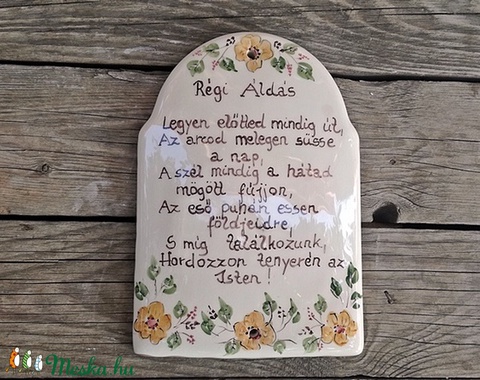 Régi Áldás
Legyen előtted mindig út,
Az arcod melegen süsse
a nap,
A szél mindig a hátad
mögött fújjon,
Az eső puhán essen
földjeidre,
S míg találkozunk,
Hordozzon tenyerén az
Isten!
Meska.hu